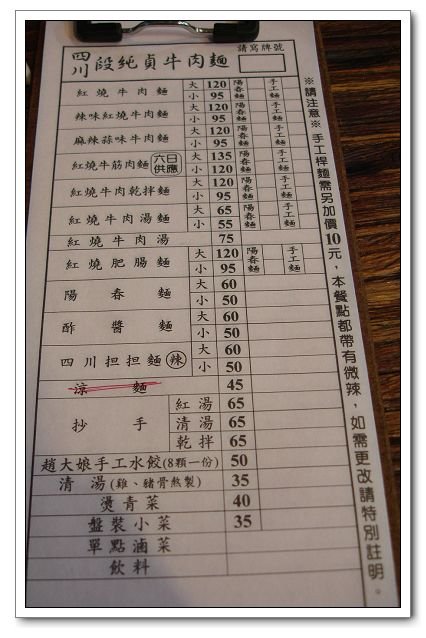 四川 段純貞牛肉麵 請寫牌號
紅燒牛肉麵 大 120 陽春麵 手工麵
小 95
辣味紅燒牛肉麵 大 120 陽春麵 手工麵
小 95
麻辣蒜味牛肉麵 大 120 陽春麵 手工麵
小 95
紅燒牛筋肉麵 六日供應 大 135 陽春麵 手工麵
小 120
紅燒牛肉乾拌麵 大 120 陽春麵 手工麵
小 95
紅燒牛肉湯麵 大 65 陽春麵 手工麵
小 55
紅燒牛肉湯 75
紅燒肥腸麵 大 120 陽春麵 手工麵
小 95
陽春麵 大 60
小 50
酢醬麵 大 60
小 50
四川担担麵 辣 大 60
小 50
涼麵 45
抄手 紅湯 65
清湯 65
乾拌 65
趙大娘手工水餃(8顆一份) 50
清湯(雞、豬骨熬製) 35
燙青菜 40
盤裝小菜 35
單點滷菜
飲料
※請注意※手工桿麵需另加價10元，本餐點都帶有微辣，如需更改請特別註明。